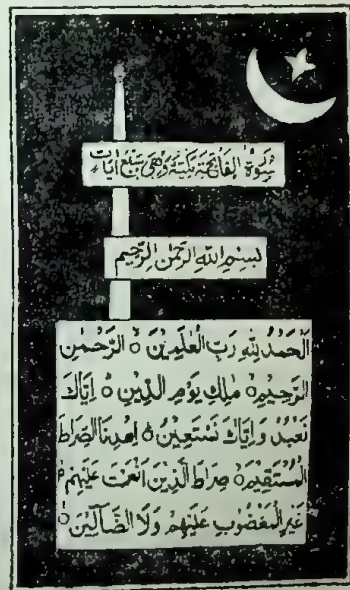 سورة الفاتحة مكية وهي سبع ايات
بسم الله الرحمن الرحيم
الْحَمْدُ لِلّٰهِ رَبِّ الْعٰلَمِيْنَ ۝ الرَّحْمٰنِ
الرَّحِيْمِ ۝ مٰلِكِ يَوْمِ الدِّيْنِ ۝ اِيَّاكَ
نَعْبُدُ وَ اِيَّاكَ نَسْتَعِيْنُ ۝ اِهْدِنَا الصِّرَاطَ
الْمُسْتَقِيْمَ ۝ صِرَاطَ الَّذِيْنَ اَنْعَمْتَ عَلَيْهِمْ
غَيْرِ الْمَغْضُوْبِ عَلَيْهِمْ وَلَا الضَّآلِّيْنَ ۝